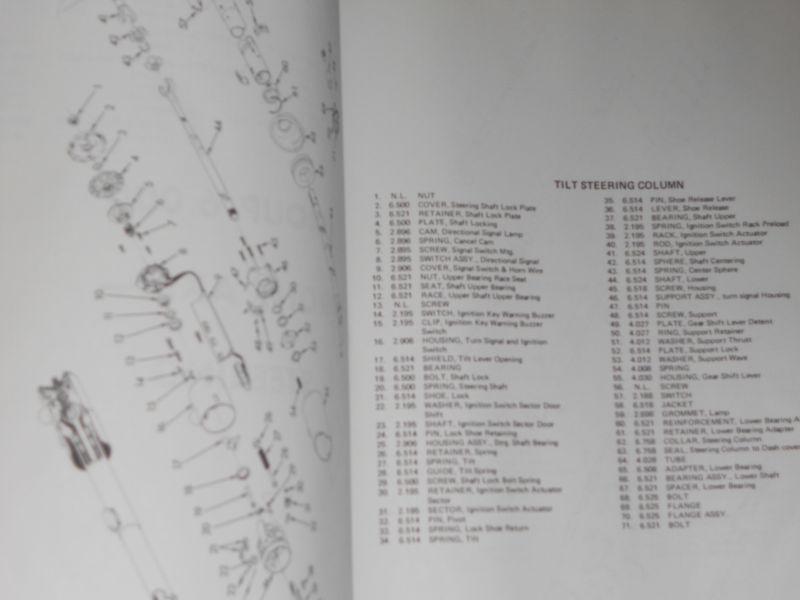 TILT STEERING COLUMN
1. N.L. NUT
2. 6.500 COVER, Steering Shaft Lock Plate
3. 6.521 RETAINER, Shaft Lock Plate
4. 6.500 PLATE, Shaft Locking
5. 2.896 CAM, Directional Signal Lamp
6. 2.896 SPRING, Cancel Cam
7. 2.895 SCREW, Signal Switch Mtg.
8. 2.895 SWITCH ASSY., Directional Signal
9. 2.906 COVER, Signal Switch & Horn Wire
10. 6.521 NUT, Upper Bearing Race Seat
11. 6.521 SEAT, Shaft Upper Bearing
12. 6.521 RACE, Upper Shaft Upper Bearing
13. N.L. SCREW
14. 2.195 SWITCH, Ignition Key Warning Buzzer
15. 2.195 CLIP, Ignition Key Warning Buzzer
Switch
16. 2.906 HOUSING, Turn Signal and Ignition
Switch
17. 6.514 SHIELD, Tilt Lever Opening
18. 6.521 BEARING
19. 6.500 BOLT, Shaft Lock
20. 6.500 SPRING, Steering Shaft
21. 6.514 SHOE, Lock
22. 2.195 WASHER, Ignition Switch Sector Door
Shift
23. 2.195 SHAFT, Ignition Switch Sector Door
24. 6.514 PIN, Lock Shoe Retaining
25. 2.906 HOUSING ASSY., Strg. Shaft Bearing
26. 6.514 RETAINER, Spring
27. 6.514 SPRING, Tilt
28. 6.514 GUIDE, Tilt Spring
29. 6.500 SCREW, Shaft Lock Bolt Spring
30. 2.195 RETAINER, Ignition Switch Actuator
Sector
31. 2.195 SECTOR, Ignition Switch Actuator
32. 6.514 PIN, Pivot
33. 6.514 SPRING, Lock Shoe Return
34. 6.514 SPRING, Tilt
35. 6.514 PIN, Shoe Release Lever
36. 6.514 LEVER, Shoe Release
37. 6.521 BEARING, Shaft Upper
38. 2.195 SPRING, Ignition Switch Rack Preload
39. 2.195 RACK, Ignition Switch Actuator
40. 2.195 ROD, Ignition Switch Actuator
41. 6.524 SHAFT, Upper
42. 6.514 SPHERE, Shaft Centering
43. 6.514 SPRING, Center Sphere
44. 6.524 SHAFT, Lower
45. 6.518 SCREW, Housing
46. 6.514 SUPPORT ASSY., turn signal Housing
47. 6.514 PIN
48. 6.514 SCREW, Support
49. 4.027 PLATE, Gear Shift Lever Detent
50. 4.027 RING, Support Retainer
51. 4.012 WASHER, Support Thrust
52. 6.514 PLATE, Support Lock
53. 4.012 WASHER, Support Wave
54. 4.008 SPRING
55. 4.030 HOUSING, Gear Shift Lever
56. N.L. SCREW
57. 2.188 SWITCH
58. 6.518 JACKET
59. 2.698 GROMMET, Lamp
60. 6.521 REINFORCEMENT, Lower Bearing A
61. 6.521 RETAINER, Lower Bearing Adapter
62. 6.758 COLLAR, Steering Column
63. 6.758 SEAL, Steering Column to Dash cover
64. 4.028 TUBE
65. 6.508 ADAPTER, Lower Bearing
66. 6.521 BEARING ASSY., Lower Shaft
67. 6.521 SPACER, Lower Bearing
68. 6.525 BOLT
69. 6.525 FLANGE
70. 6.525 FLANGE ASSY.
71. 6.521 BOLT